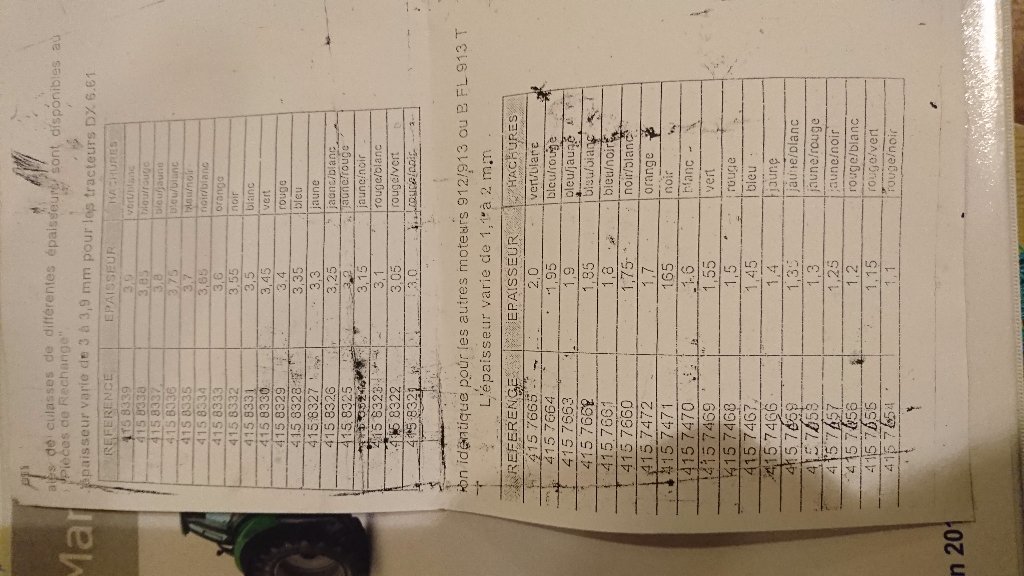 ares de culasses de différentes épaisseurs sont disponibles au
"Pièces de Rechange"
épaisseur varie de 3 à 3,9 mm pour les tracteurs DX 6.61
REFERENCE EPAISSEUR HACHURES
415 8339 3,9 vert/blanc
415 8338 3,85 bleu/rouge
415 8337 3,8 bleu/jaune
415 8336 3,75 bleu/blanc
415 8335 3,7 bleu/noir
415 8334 3,65 noir/blanc
415 8333 3,6 orange
415 8332 3,55 noir
415 8331 3,5 blanc
415 8330 3,45 vert
415 8329 3,4 rouge
415 8328 3,35 bleu
415 8327 3,3 jaune
415 8326 3,25 jaune/blanc
415 8325 3,2 jaune/rouge
3,15 jaune/noir
415 8323 3,1 rouge/blanc
415 8322 3,05 rouge/vert
415 8321 3,0 rouge/noir
on identique pour les autres moteurs 912/913 ou B FL 913 T
L'épaisseur varie de 1,1 à 2 mm
REFERENCE EPAISSEUR HACHURES
415 7665 2,0 vert/blanc
415 7664 1,95 bleu/rouge
415 7663 1,9 bleu/jaune
415 7662 1,85 bleu/blanc
415 7661 1,8 bleu/noir
415 7660 1,75 noir/blanc
415 7472 1,7 orange
415 7471 165 noir
415 7470 1,6 blanc
415 7469 1,55 vert
415 7468 1,5 rouge
415 7467 1,45 bleu
415 7466 1,4 jaune
415 7669 1,35 jaune/blanc
415 7658 1,3 jaune/rouge
415 7657 1,25 jaune/noir
415 7656 1,2 rouge/blanc
415 7655 1,15 rouge/vert
415 7654 1,1 rouge/noir
Mar
n 201